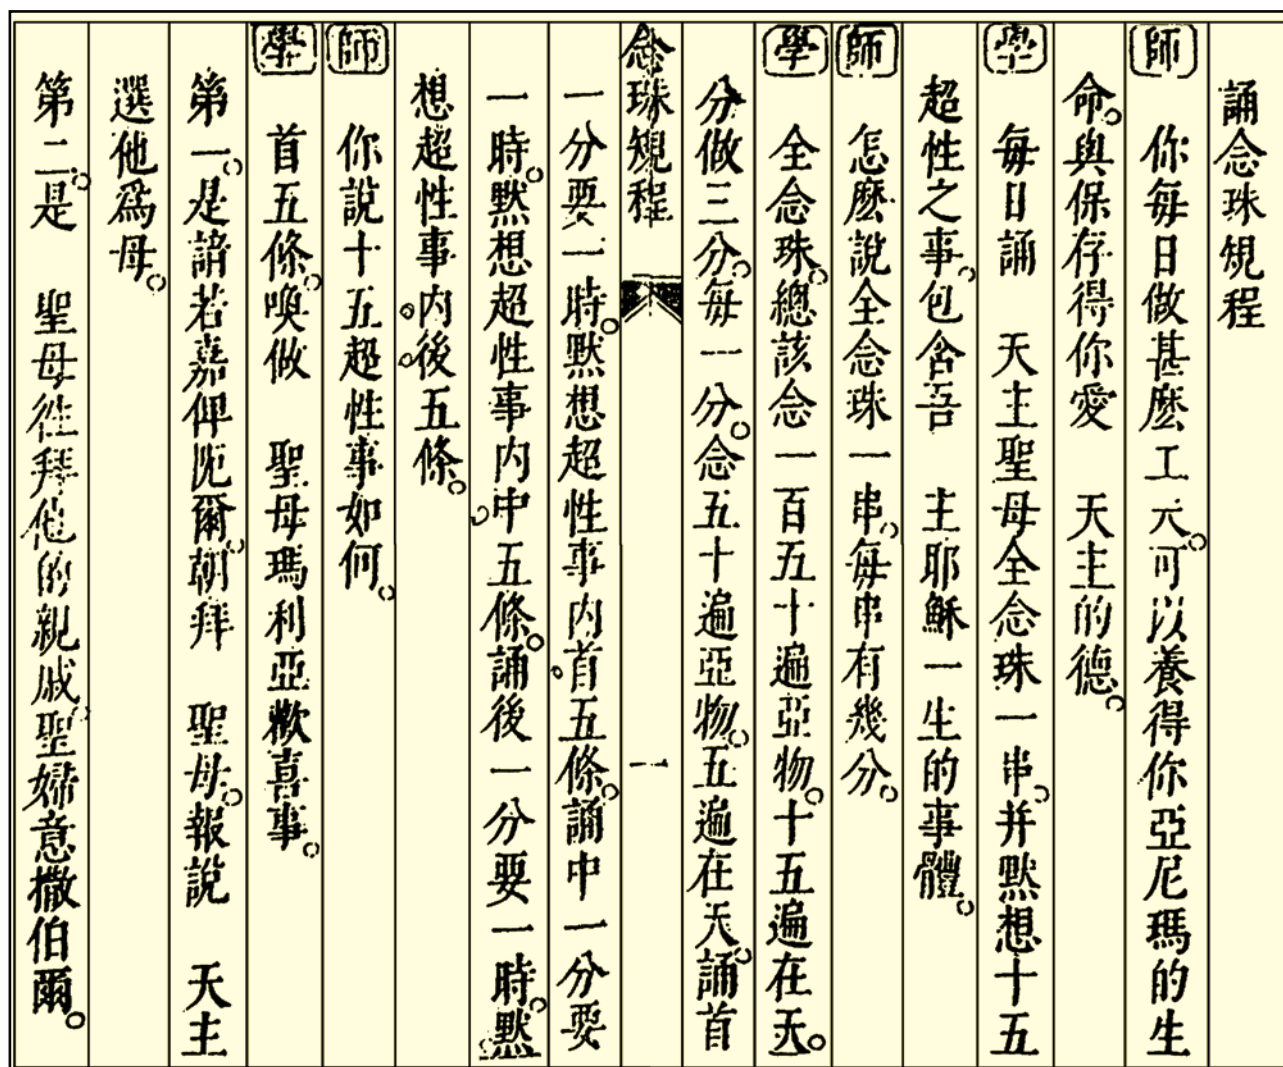 誦念珠規程
師 你每日做甚麽工夫。可以養得你亞尼瑪的生
命。與保存得你愛 天主的德。
學 每日誦 天主聖母全念珠一串。并默想十五
超性之事。包含吾 主耶穌一生的事體。
師 怎麽說全念珠一串。每串有幾分。
學 全念珠。總該念一百五十遍亞物。十五遍在天。
分做三分。每一分。念五十遍亞物。五遍在天。誦首
念珠規程 一
一分要一時。默想超性事內。首五條。誦中一分要
一時。默想超性事內。中五條。誦後一分要一時。默
想超性事。內。後五條。
師 你說十五超性事如何。
學 首五條。喚做 聖母瑪利亞歡喜事。
第一。是諳若嘉俾阨爾。朝拜 聖母。報說 天主
選他爲母。
第二。是 聖母徃拜他的親戚。聖婦意撒伯爾。